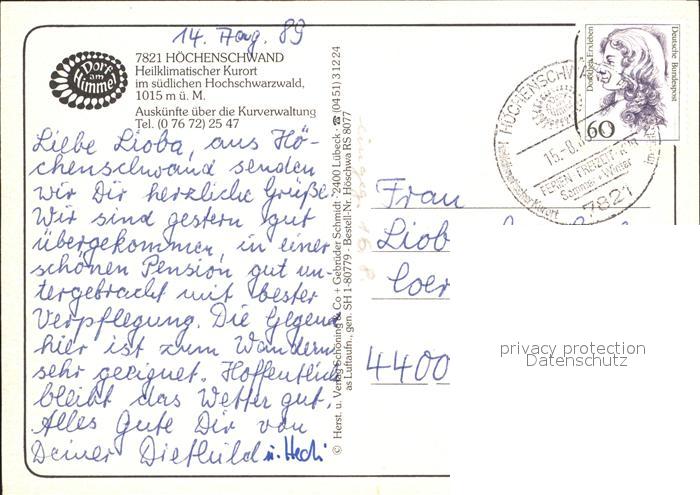 14. Aug. 89
Dorf
am
Himmel
7821 HÖCHENSCHWAND
Heilklimatischer Kurort
im südlichen Hochschwarzwald,
1015 m ü. M.
Auskünfte über die Kurverwaltung
Tel. (0 76 72) 25 47
Liebe Lioba, aus Hö-
chenschwand senden
wir Dir herzliche Grüße.
Wir sind gestern gut
übergekommen, in einer
schönen Pension gut un-
tergebracht mit bester
Verpflegung. Die Gegend
hier ist zum Wandern
sehr geeignet. Hoffentlich
bleibt das Wetter gut.
Alles Gute Dir von
Deiner Diethild u. Hedi
© Herst. u. Verlag Schöning & Co + Gebrüder Schmidt · 2400 Lübeck · ☎ (0451) 3 12 24
as Luftaufn., gen. SH 1-80779 · Bestell-Nr. Höschwa RS 8077
Dorothea Erxleben
Deutsche Bundespost
60
HÖCHENSCHWA
Heilklimatischer Kurort
15.-8.
FERIEN FREIZEIT
Sommer + Winter
7821
Frau
Liob
Coer
4400
privacy protection
Datenschutz